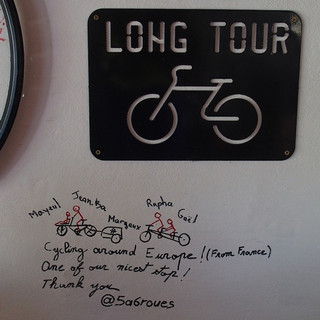 LONG TOUR
Mayeul Jean-Ba Margaux Rapha Gaël
Cycling around Europe! (From France)
One of our nicest stop!
Thank you
@5a6roues